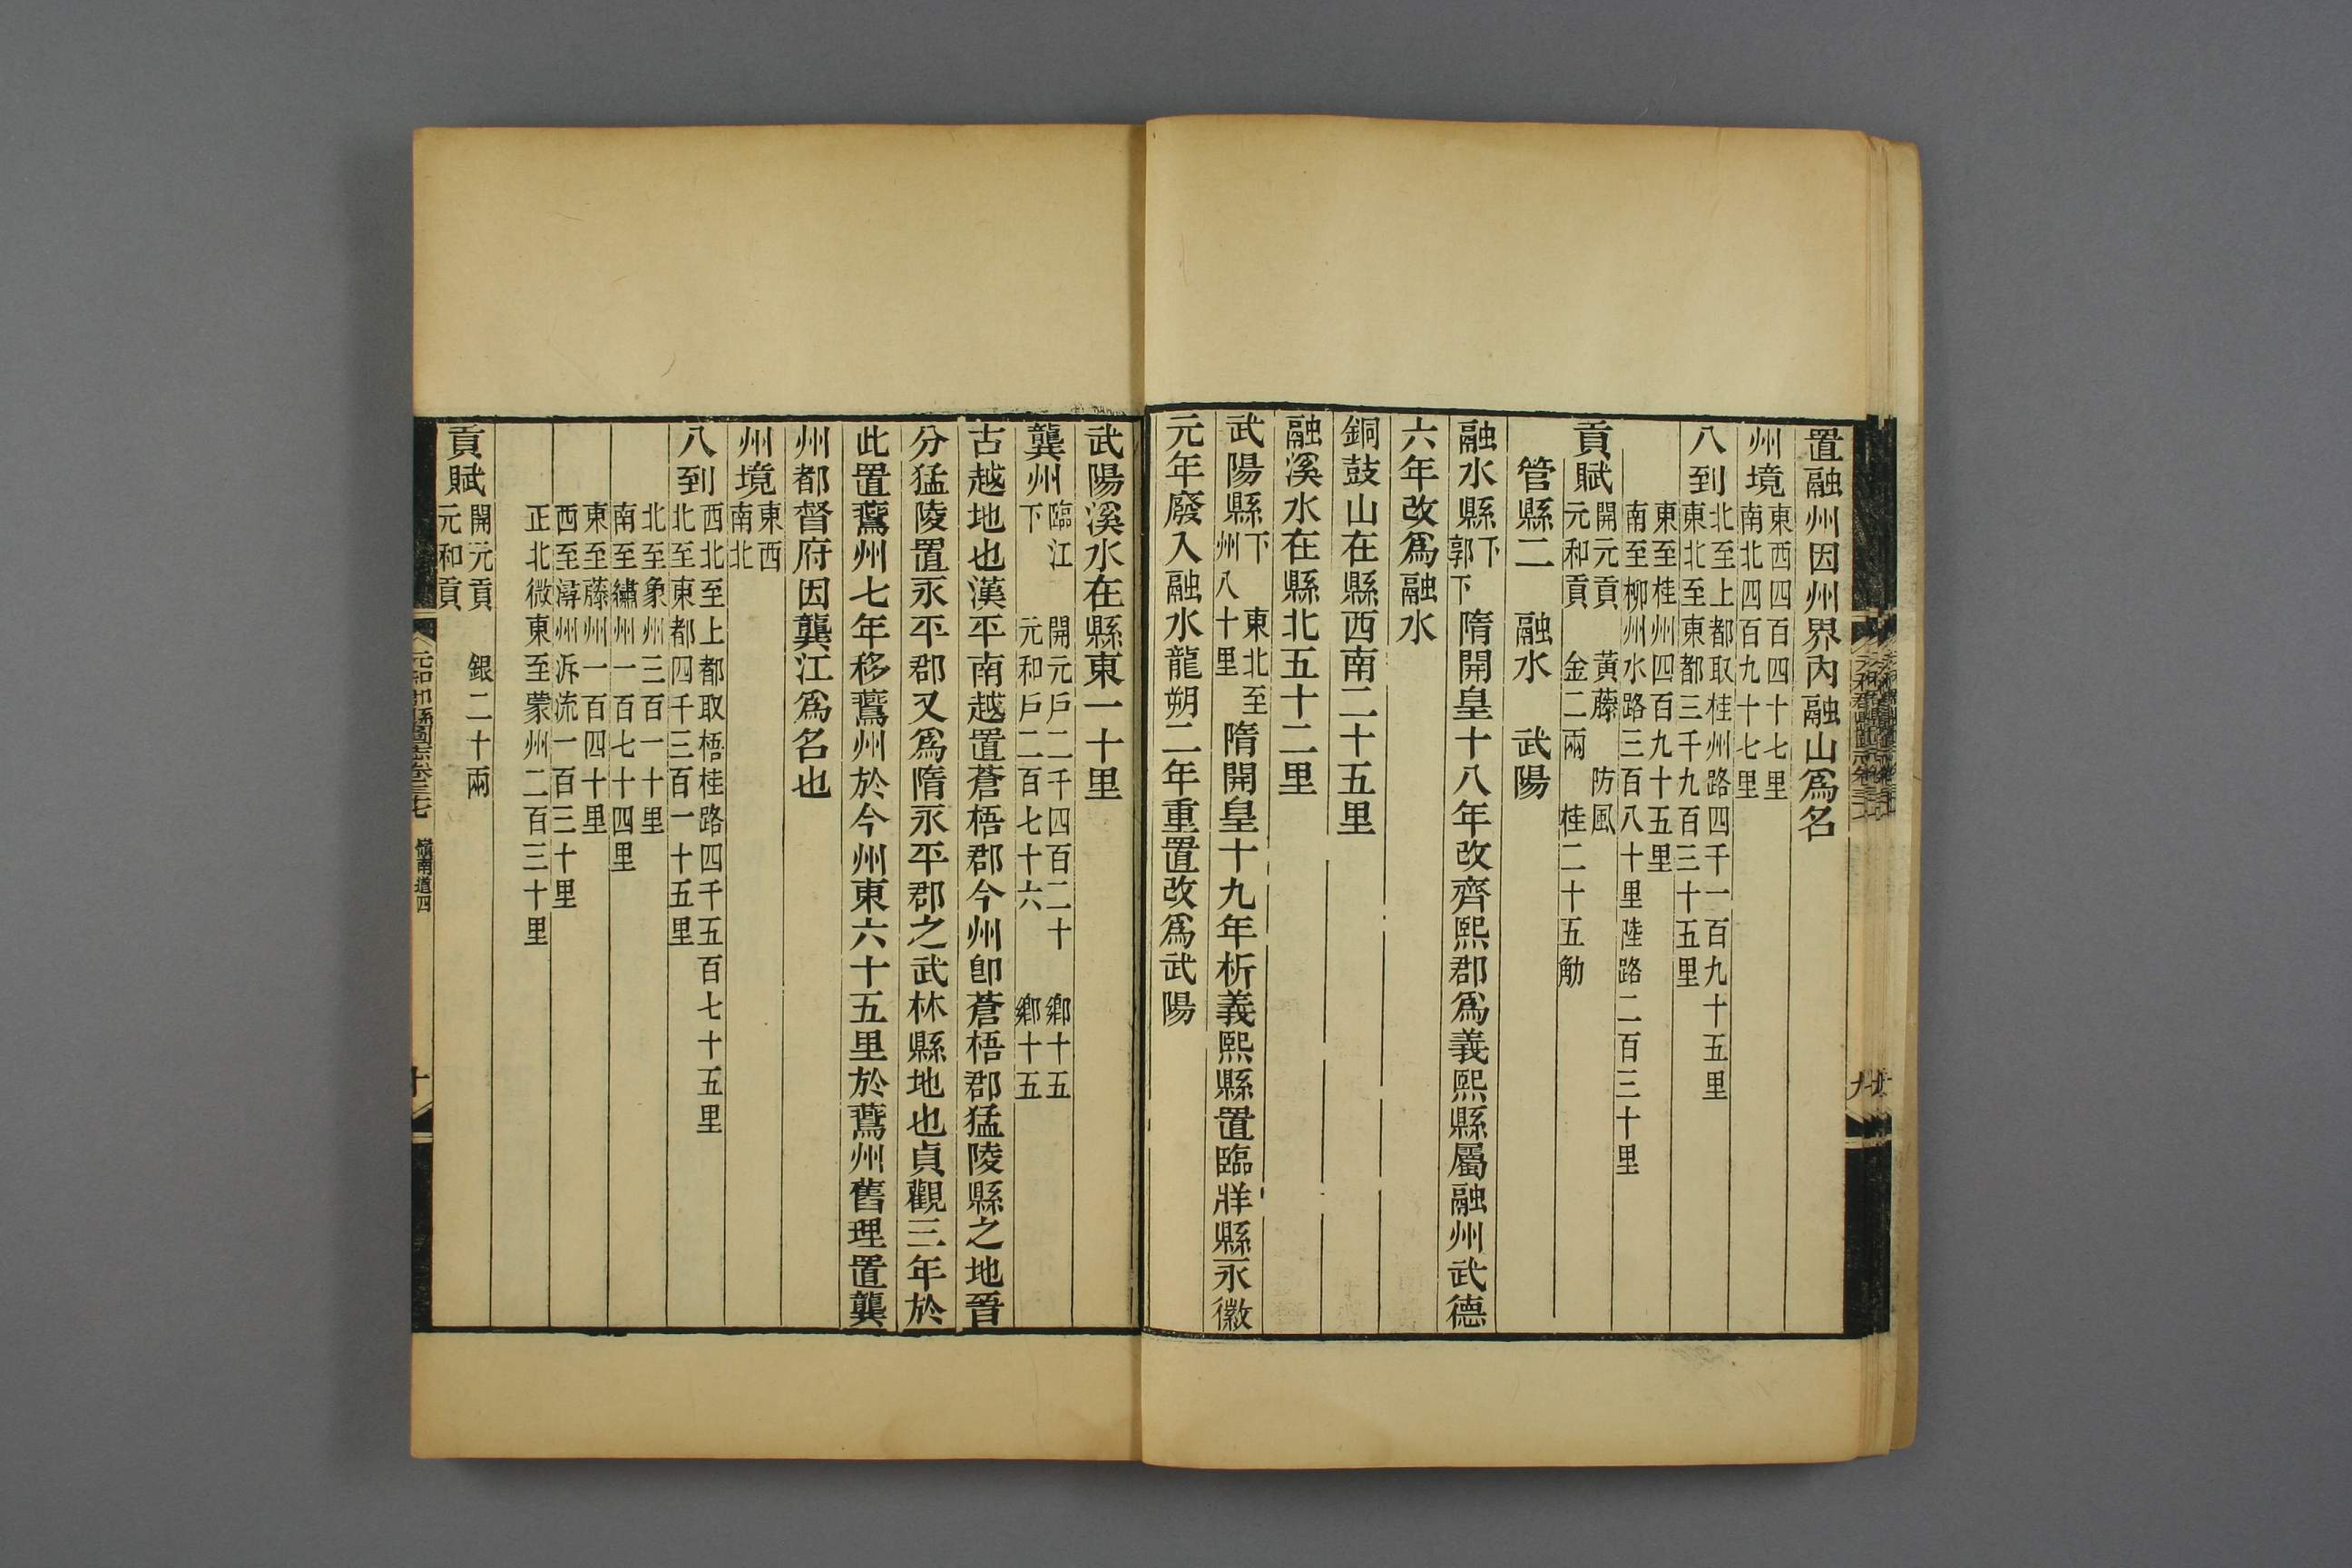 置融州因州界內融山爲名
州境東西四百四十七里
南北四百九十七里
八到北至上都取桂州路四千一百九十五里
東北至東都三千九百三十五里
東至桂州四百九十五里
南至柳州水路三百八十里陸路二百三十里
貢賦開元貢 黃藤 防風
元和貢 金二兩 桂二十五觔
管縣二 融水 武陽
融水縣下
郭下
隋開皇十八年改齊熙郡爲義熙縣屬融州武德
六年改爲融水
銅鼓山在縣西南二十五里
融溪水在縣北五十二里
武陽縣下 東北至
州八十里
隋開皇十九年析義熙縣置臨牂縣永徽
元年廢入融水龍朔二年重置改爲武陽
武陽溪水在縣東一十里
龔州臨江 開元戶二千四百二十 鄉十五
下 元和戶二百七十六 鄉十五
古越地也漢平南越置蒼梧郡今州卽蒼梧郡猛陵縣之地晉
分猛陵置永平郡又爲隋永平郡之武林縣地也貞觀三年於
此置鷰州七年移鷰州於今州東六十五里於鷰州舊理置龔
州都督府因龔江爲名也
州境東西
南北
八到西北至上都取梧桂路四千五百七十五里
北至東都四千三百一十五里
北至象州三百一十里
南至繡州一百七十四里
東至藤州一百四十里
西至潯州泝流一百三十里
正北微東至蒙州二百三十里
貢賦開元貢 銀二十兩
元和貢
元和郡縣圖志卷三七 嶺南道四
十